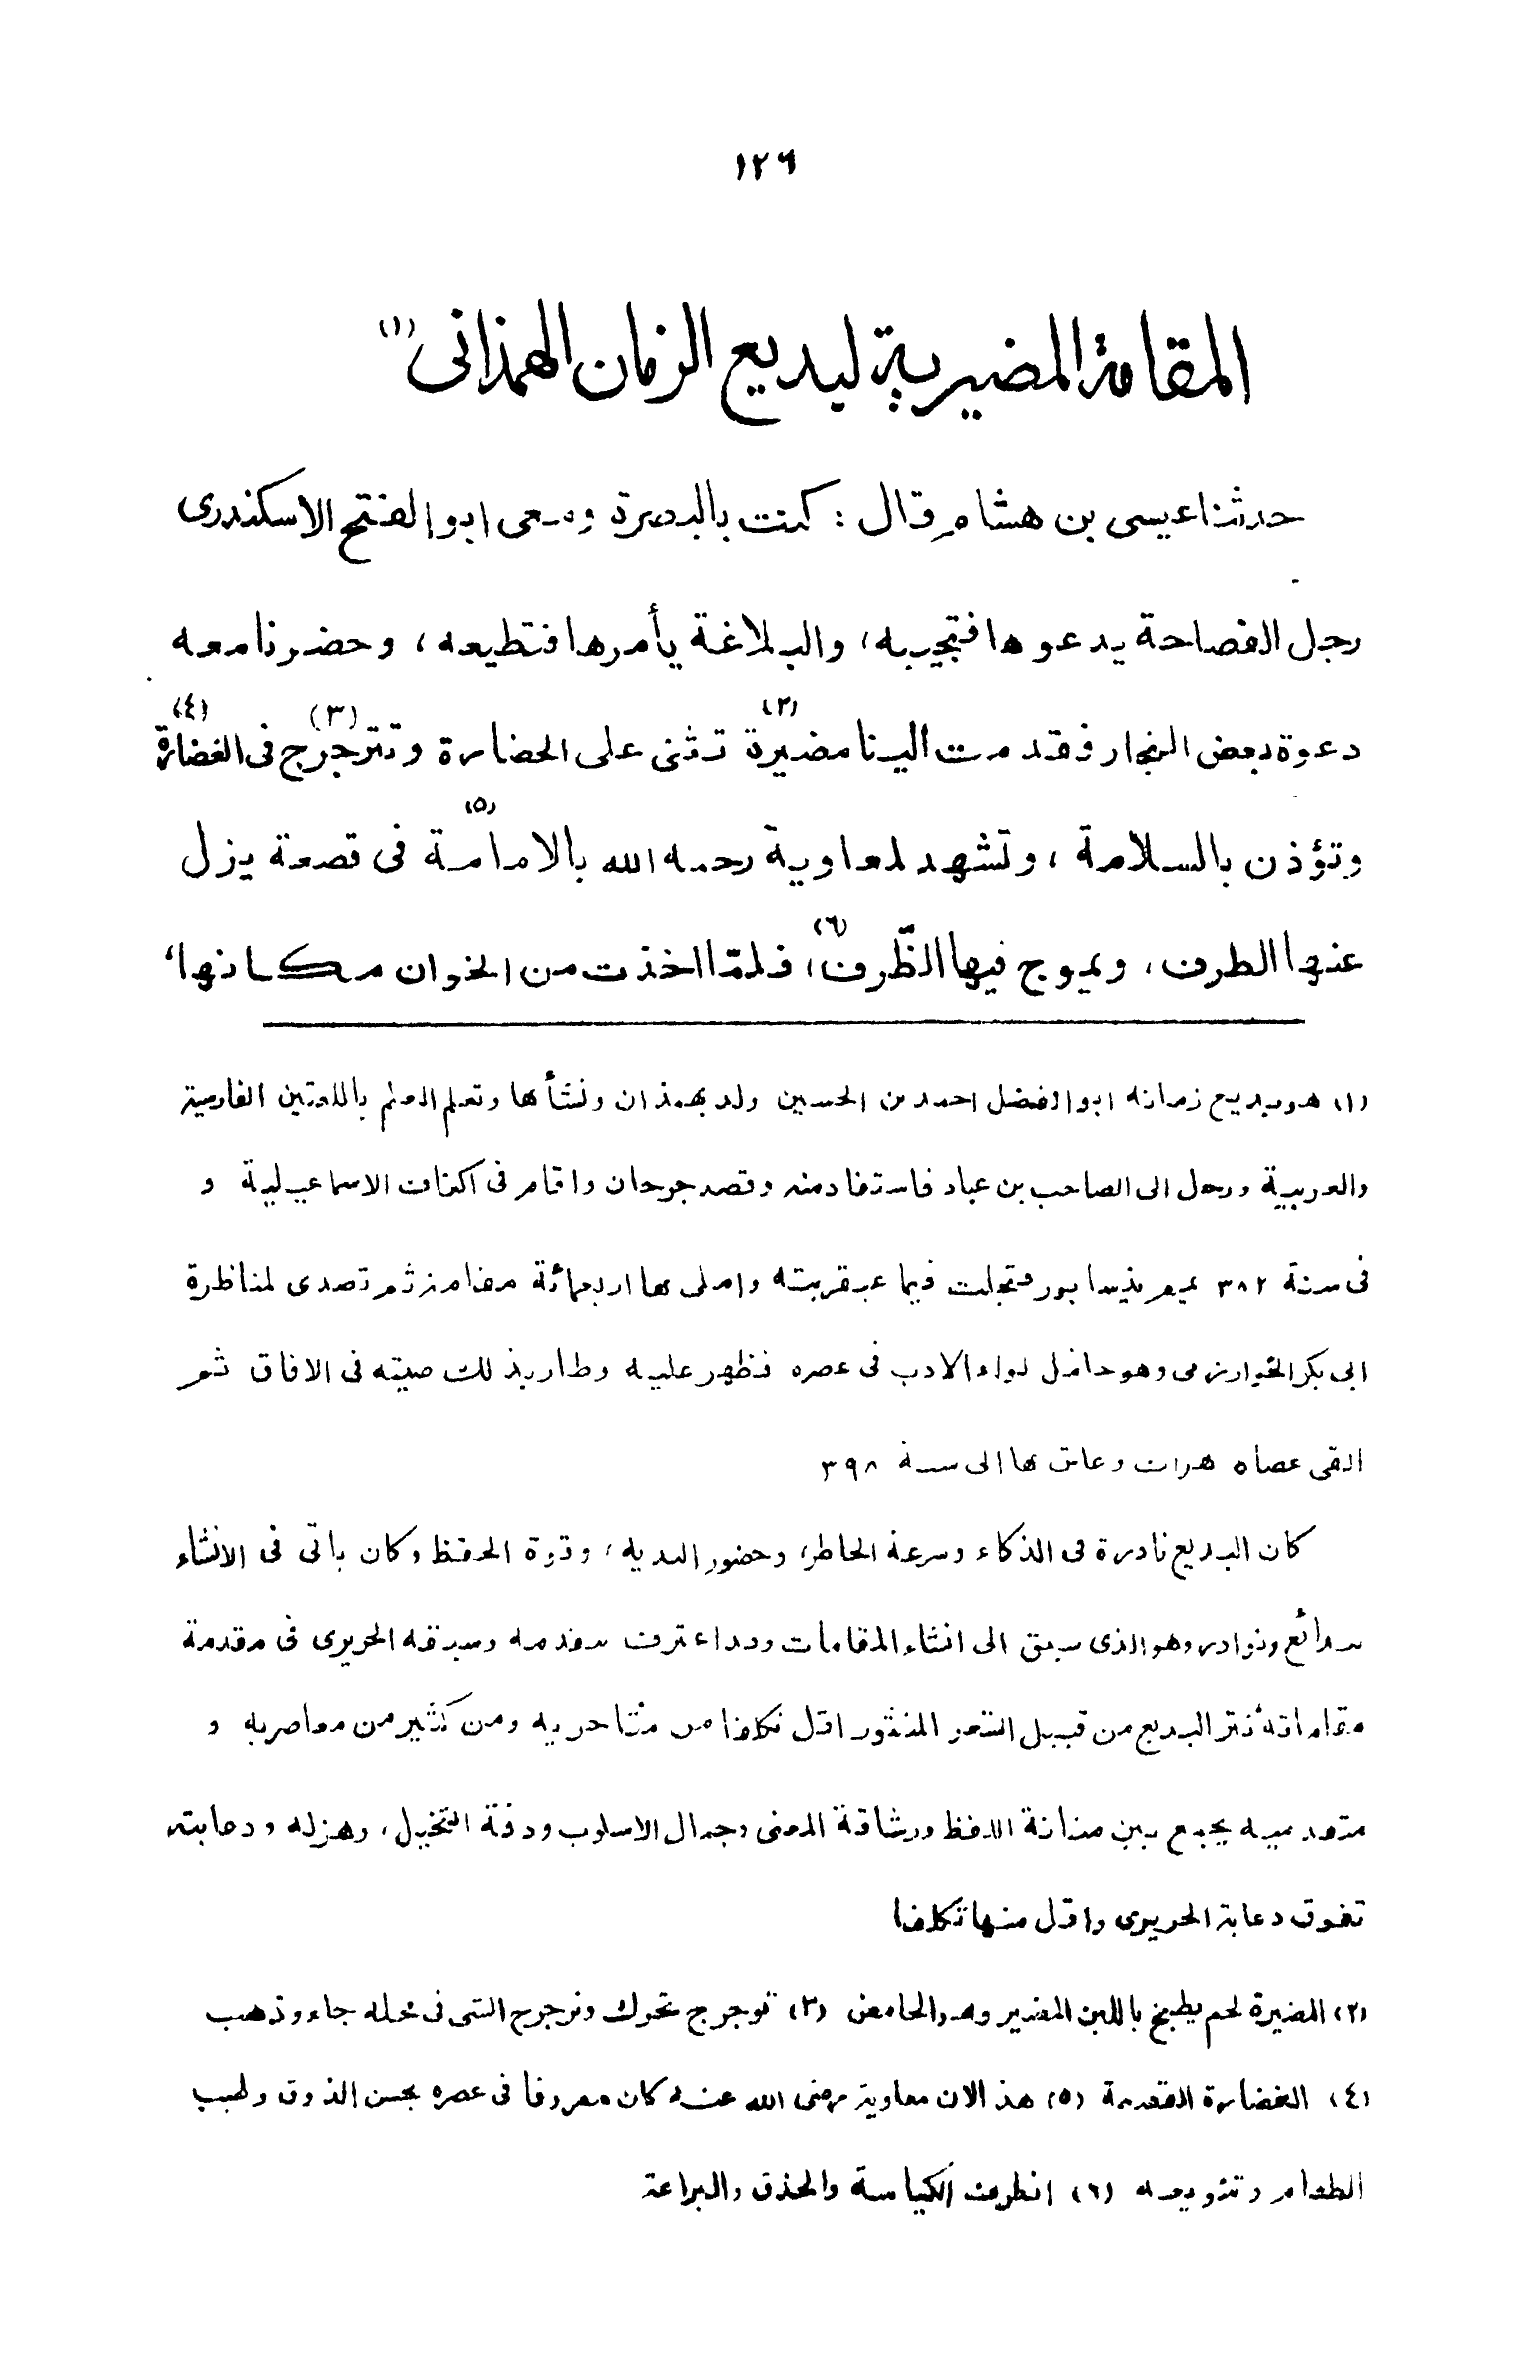 ١٢٦
المقامة المضيرية لبديع الزمان الهمذانى (١)
حدثنا عيسى بن هشام قال : كنت بالبصرة ومعى ابو الفتح الاسكندرى
رجل الفصاحة يدعوها فتجيبه، والبلاغة يأمرها فتطيعه، وحضرنا معه
دعوة بعض التجار فقدمت الينا مضيرة (٢) تثنى على الحضارة وتترجرج (٣) فى الغضارة (٤)
وتؤذن بالسلامة، وتشهد لمعاوية رحمه الله بالامامة (٥) فى قصعة يزل
عنها الطرف، ويموج فيها الظّرف (٦)، فلمّا اخذت من الخوان مكانها،
(١) هو بديع زمانه ابو الفضل احمد بن الحسين ولد بهمذان ونشأ بها وتعلم العلم باللغتين الفارسية
والعربية ورحل الى الصاحب بن عباد فاستفاد منه وقصد جرجان واقام فى اكناف الاسماعيلية و
فى سنة ٣٨٢ يمم نيسابور فتجلت فيها عبقريته واملى بها اربعمائة مقامة ثم تصدى لمناظرة
ابى بكر الخوارزمى وهو حامل لواء الادب فى عصره فظهر عليه وطار بذلك صيته فى الافاق ثم
القى عصاه هرات وعاش بها الى سنة ٣٩٨
كان البديع نادرة فى الذكاء وسرعة الخاطر، وحضور البديه، وقوة الحفظ وكان ياتى فى الانشاء
بدائع ونوادر وهو الذى سبق الى انشاء المقامات وقد اعترف بتقدمه وسبقه الحريرى فى مقدمة
مقاماته نثر البديع من قبيل الشعر المنثور اقل تكلفا من متاخريه ومن كثير من معاصريه و
متقدميه يجمع بين متانة اللفظ ورشاقة المعنى وجمال الاسلوب ودقة التخيل، وهزله ودعابته
تفوق دعابة الحريرى واقل منها تكلفا
(٢) المضيرة لحم يطبخ باللبن المضير وهو الحامض (٣) ترجرج تحرك وترجرج الشى فى محله جاء وذهب
(٤) الغضارة القصعة (٥) هذ الان معاوية رضى الله عنه كان معروفا فى عصره بحسن الذوق وطيب
الطعام وتنويعه (٦) الظرف الكياسة والحذق والبراعة